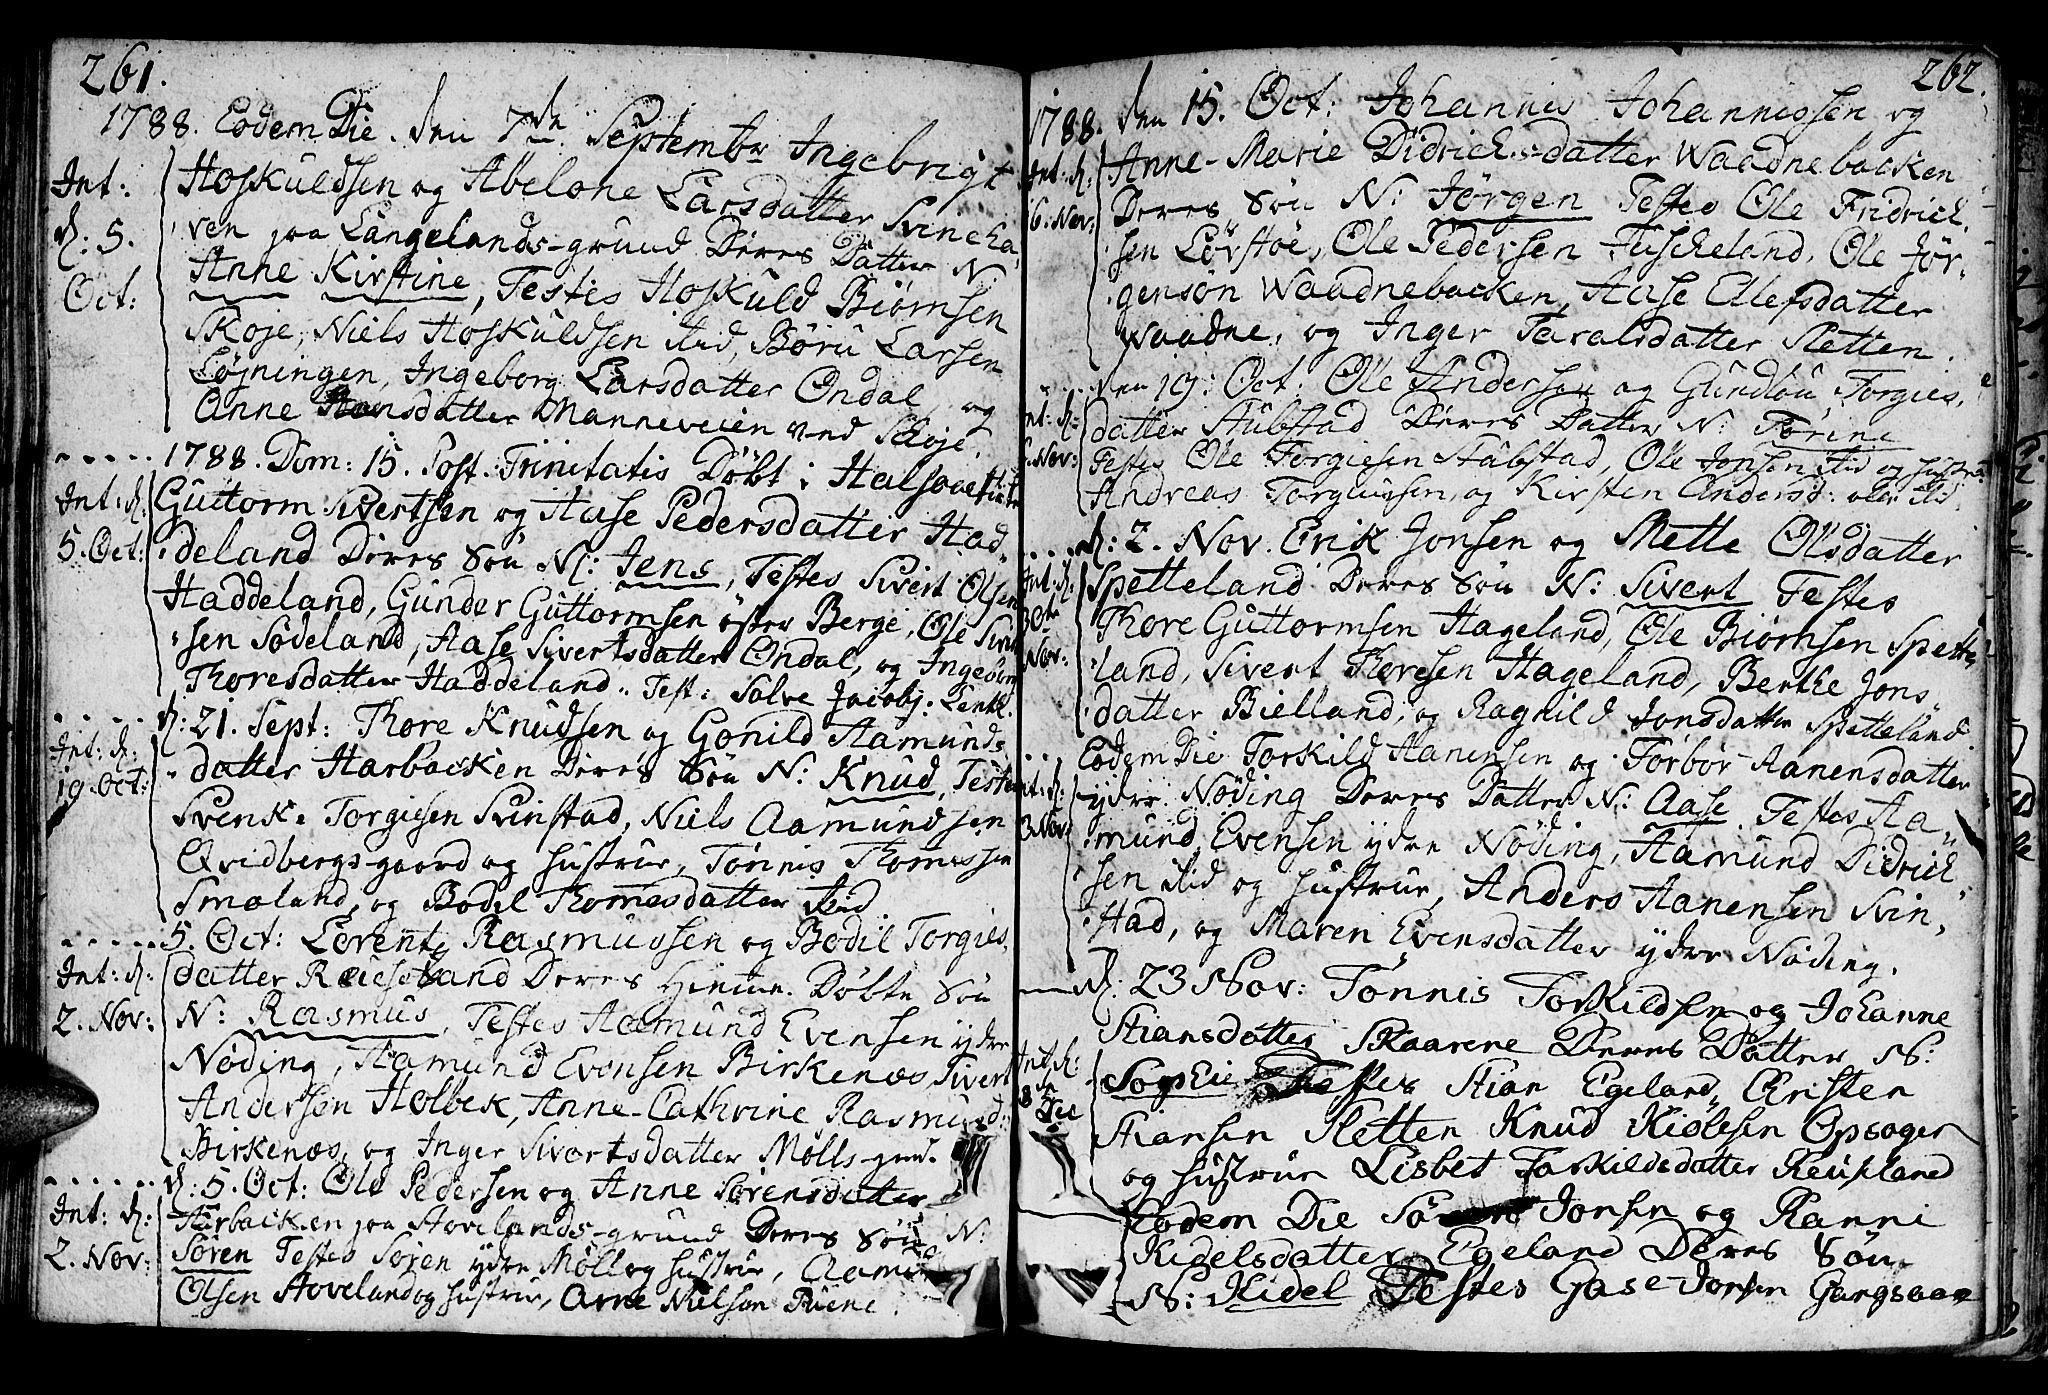 261.
1788. Eodem Die. den 7de Septembr Ingebrigt
Hoskuldsen og Abelone Larsdatter Svineha-
ven paa Langelands-grund Deres Datter N
Anne Kirstine, Testes Hoskuld Biørnsen
Skoje, Niels Hoskuldsen ibid, Børu Larsen
Løjningen, Ingeborg Larsdatter Ondal, og
Anne Hansdatter Manneveien ved Schoje.
Int:
d: 5.
Oct:
1788. Dom: 15. Post. Trinitatis Døbt i Halsaae Kirke
Guttorm Sivertsen og Aase Pedersdatter Had-
deland Deres Søn N: Jens, Testes Sivert Olsen
Haddeland, Gunder Guttormsen øster Berge, Ole
sen Sødeland, Aase Sivertsdatter Ondal, og Ingebor
Thoresdatter Haddeland. Test: Salve Jacobj:
Int: d:
5. Oct:
d: 21. Sept: Thore Knudsen og Gonild Aamunds-
datter Harbacken Deres Søn N: Knud, Testes
Svenke Torgiesen Svinstad, Niels Aamundsen
Qvidbergs-gaard og Hustrue, Tønnis Thomessen
Smaland, og Bodel Thomesdatter ibid
Int: d:
19. Oct:
5. Oct: Lorentz Rasmussen og Bodil Torgies-
datter Reieseland Deres Hiemme Døbte Søn
N: Rasmus, Testes Aamund Evensen ydre
Nøding, Aamund Evensen Birkenæs, Sivert
Andersen Holbek, Anne-Cathrine Rasmusd:
Birkenæs, og Inger Sivertsdatter Mølls-grud.
Int: d:
2. Nov:
d: 5. Oct: Ole Pedersen og Anne Sørensdatter
Aurbacken paa Hovelands-grund Deres Søn N:
Søren Testes Søren ydre Møll og Hustrue, Aamund
Olsen Hoveland og Hustrue, Arne Nielsen Tuene.
Int: d:
2. Nov:
262.
1788. den 15. Oct: Johannis Johannissen og
Anne-Marie Didrichsdatter Waadnebacken
Deres Søn N: Jørgen Testes Ole Fridrich-
sen Lørstøe, Ole Pedersen Tuscheland, Ole Jør-
gensøn Waadnebacken, Aase Ellefsdatter
Waadne, og Inger Taralsdatter Sletten.
Int: d:
16. Nov:
den 19: Oct: Ole Andersen og Gundlou Torgies-
datter Stubstad Deres Datter N: Tørine
Testes Ole Torgiesen Stubstad, Ole Jonsen ibid og Hustrue
Andreas Torgiusen, og Kirsten Andersd: ibid
Int: d:
Nov:
d: 2. Nov. Erik Jonsen og Mette Olsdatter
Spetteland Deres Søn N: Sivert Testes
Thore Guttormsen Hageland, Ole Biørnsen Spette-
land, Sivert Thoresen Hageland, Berthe Jons-
datter Bielland, og Ragnild Jonsdatter Spetteland
Int: d:
30te
Nov:
Eodem Die Torkild Aanensen og Torbor Aanensdatter
ydre Nøding Deres Datter N: Aase. Testes Aa-
mund Evensen ydre Nøding, Aamund Didrich-
sen ibid og Hustrue, Anders Aanensen Svin-
stad, og Maren Evensdatter ydre Nøding.
Int: d:
Nov:
d: 23 Nov: Tønnis Torkildsen og Johanne
Stiansdatter Skaarene Deres Datter N:
Sophie Testes Stian Egeland, Christen
Stiansen Sletten Knud Kiølesen Opsoger
og Hustrue Lisbet Torkildsdatter Reuseland
Int: d:
8 Dec
Eodem Die Søren Jonsen og Ranni
Kidelsdatter Egeland Deres Søn
N: Kidel Testes Gase-Jonsen